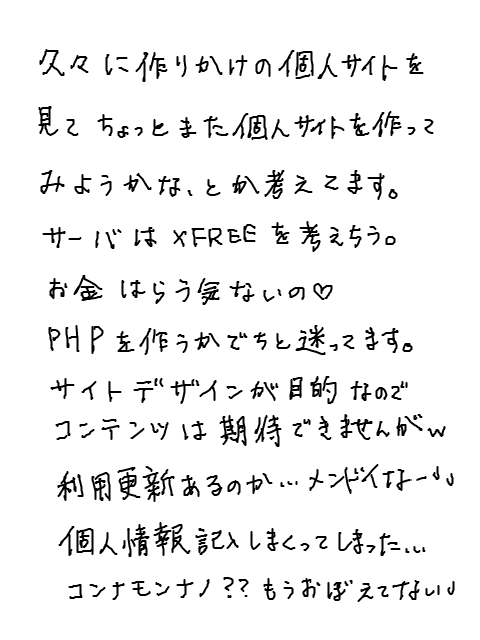 久々に作りかけの個人サイトを
見てちょっとまた個人サイトを作って
みようかな、とか考えてます。
サーバはXFREEを考えちう。
お金はらう気ないの♡
PHPを作うかでちと迷ってます。
サイトデザインが目的なので
コンテンツは期待できませんがw
利用更新あるのか…メンドイなー、、
個人情報記入しまくってしまった…
コンナモンナノ??もうおぼえてない、